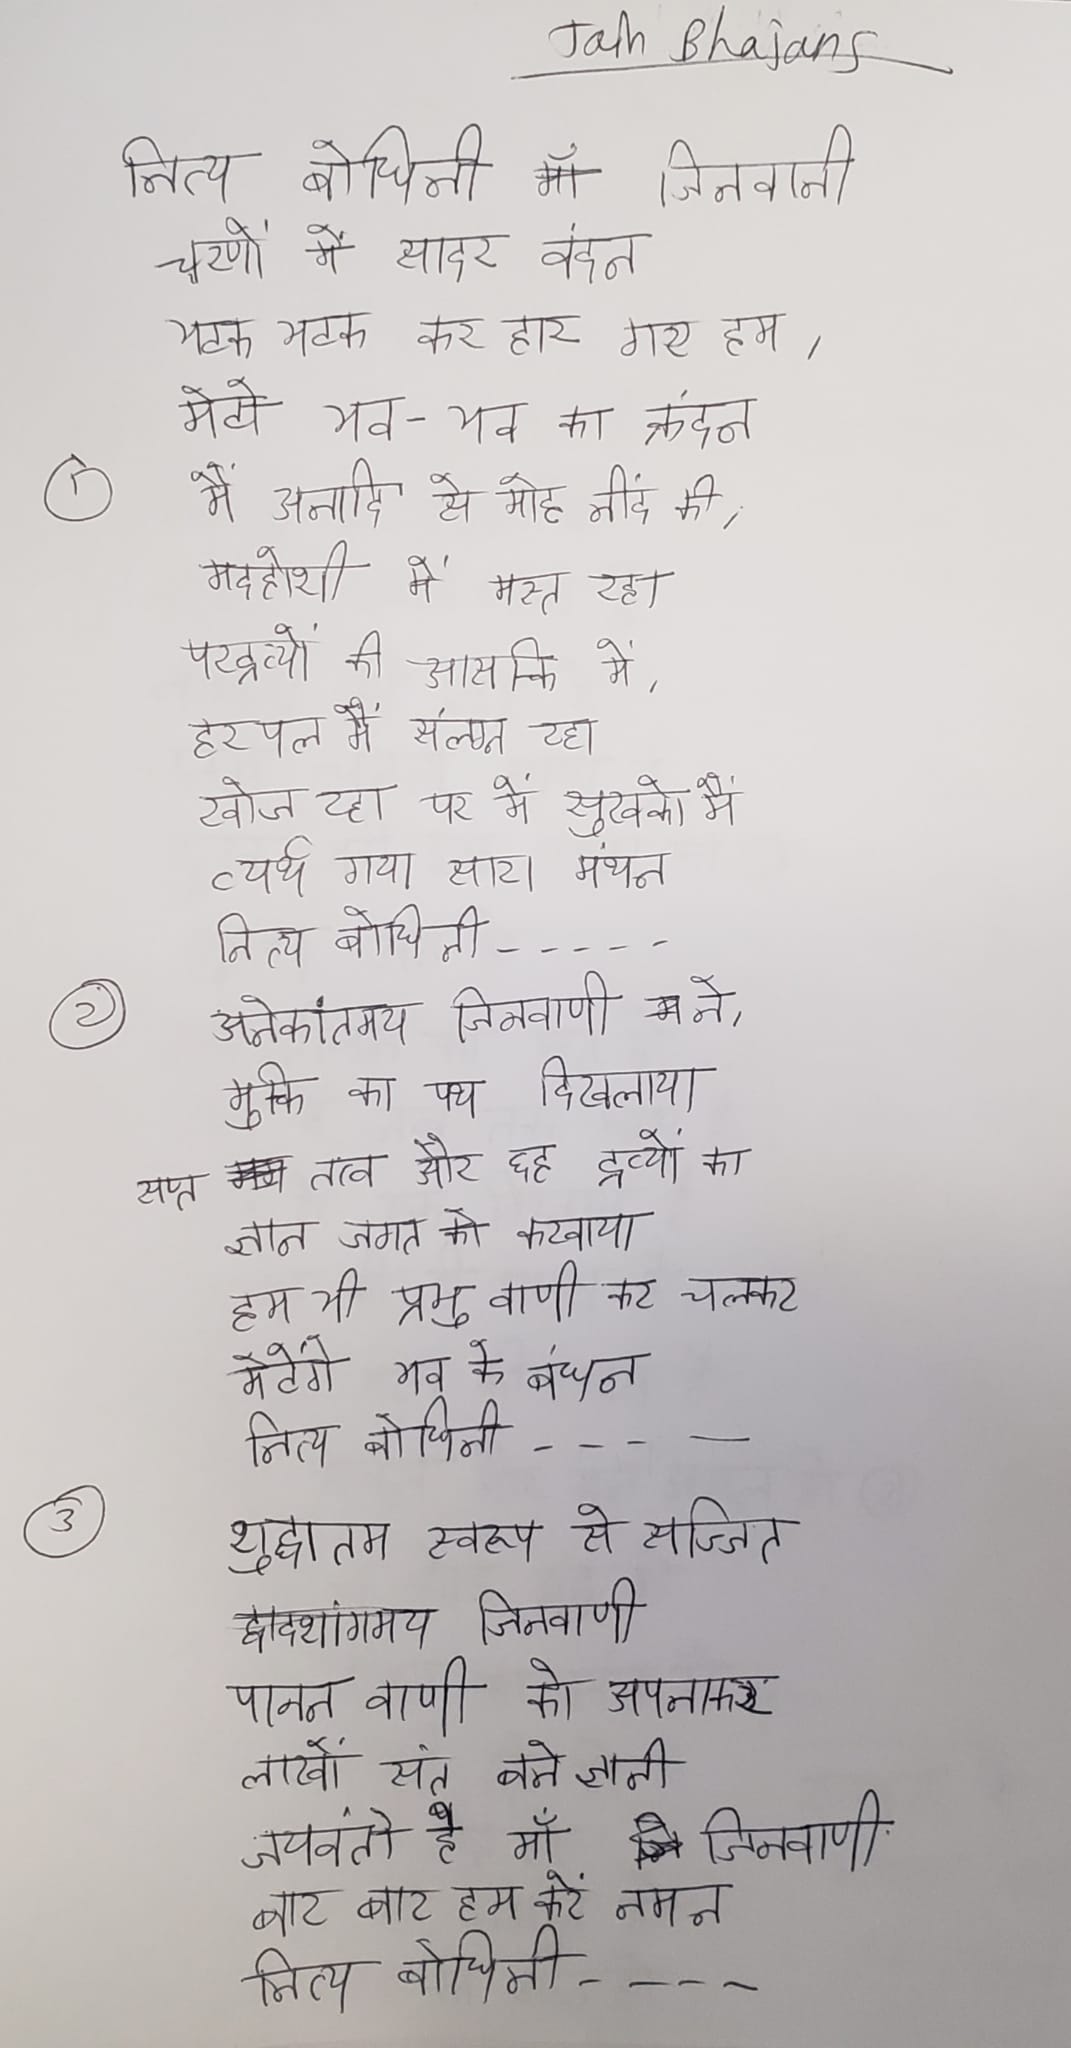 Jain Bhajans
नित्य बोधिनी माँ जिनवानी
चरणों में सादर वंदन
भटक भटक कर हार गए हम,
मेटो भव-भव का क्रंदन
1 मैं अनादि से मोह नींद की,
मदहोशी में मस्त रहा
परद्रव्यों की आसक्ति में,
हरपल मैं संलग्न रहा
खोज रहा पर में सुखको मैं
व्यर्थ गया सारा मंथन
नित्य बोधिनी - - - - -
2 अनेकांतमय जिनवाणी ने,
मुक्ति का पथ दिखलाया
सप्त तत्व और छह द्रव्यों का
ज्ञान जगत को करवाया
हम भी प्रभु वाणी कर चलकर
मेटेंगे भव के बंधन
नित्य बोधिनी - - - —
3 शुद्धातम स्वरूप से सज्जित
द्वादशांगमय जिनवाणी
पावन वाणी को अपनाकर
लाखों संत बने ज्ञानी
जयवंतो हे माँ जिनवाणी
बार बार हम करें नमन
नित्य बोधिनी - - - - -